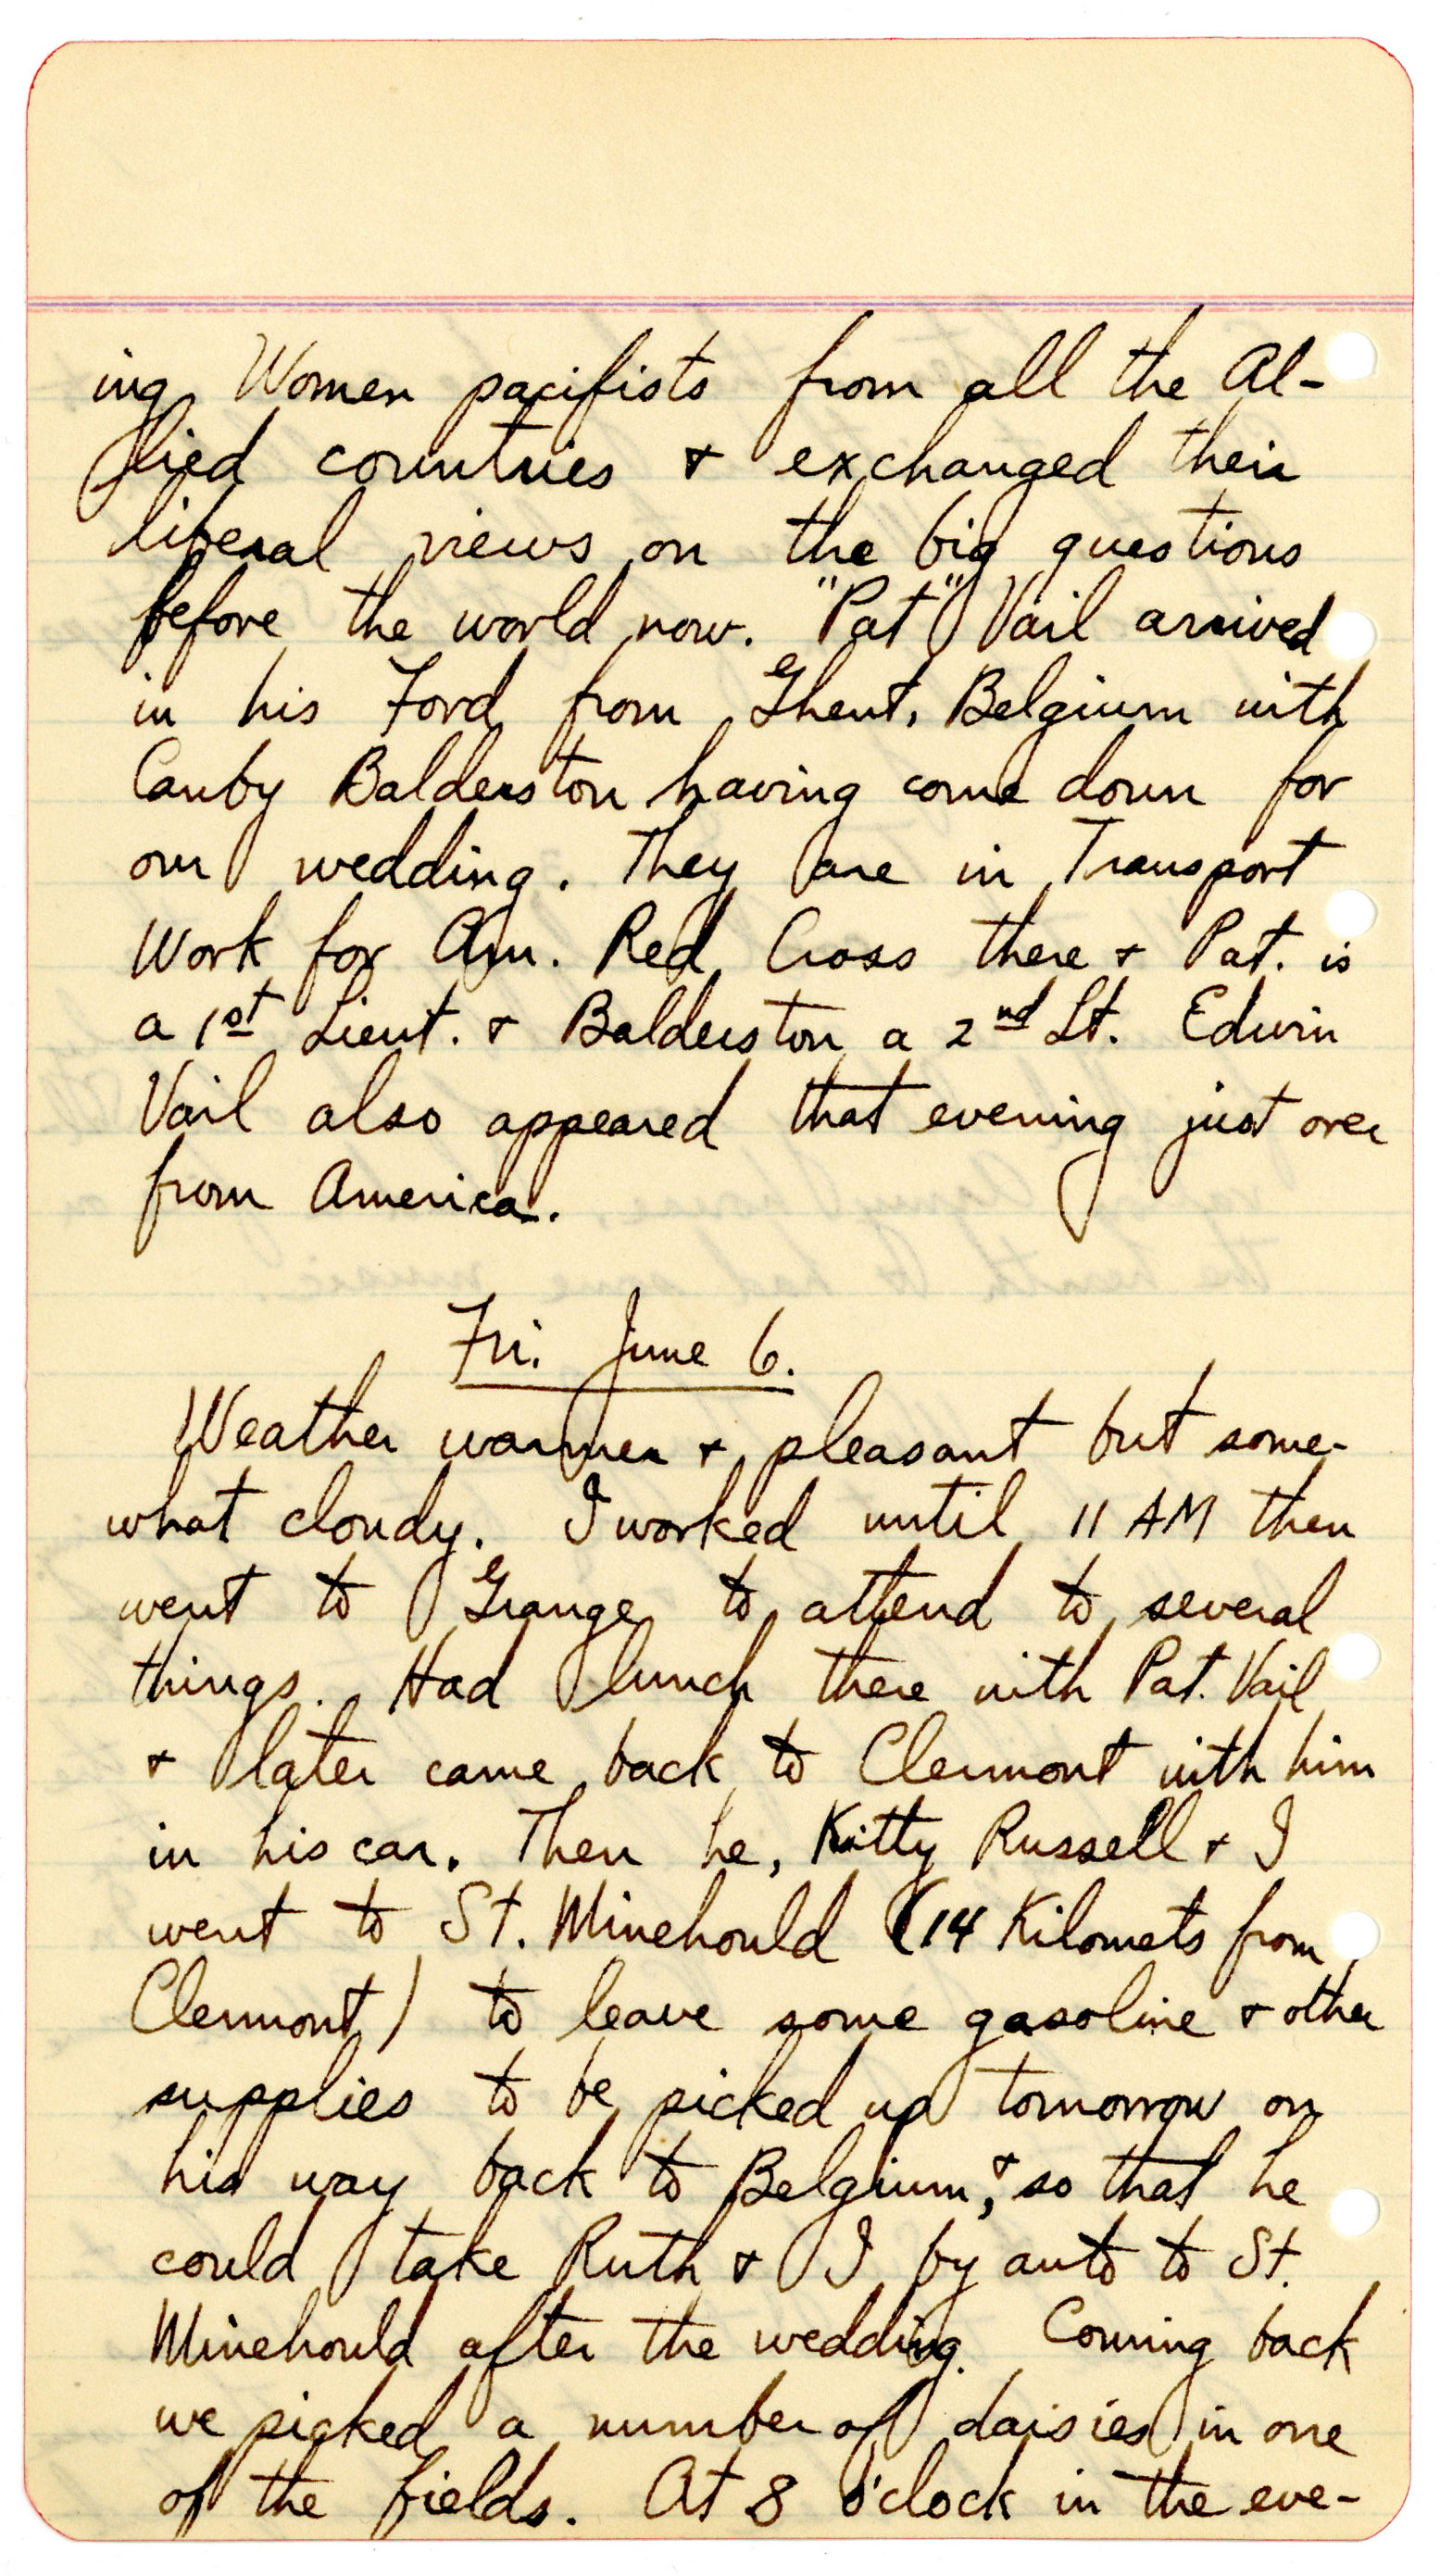 ing Women pacifists from all the Al-
lied countries & exchanged their
liberal views on the big questions
before the world now. "Pat" Vail arrived
in his Ford from Ghent, Belgium with
Canby Balderston having come down for
our wedding. They are in Transport
Work for Am. Red Cross there & Pat. is
a 1st Lieut. & Balderston a 2nd Lt. Edwin
Vail also appeared that evening just over
from America.
Fri. June 6.
Weather warmer & pleasant but some-
what cloudy. I worked until 11 AM then
went to Grange to attend to several
things. Had lunch there with Pat. Vail
& later came back to Clermont with him
in his car. Then he, Kitty Russell & I
went to St. Minehould (14 Kilomets from
Clermont) to leave some gasoline & other
supplies to be picked up tomorrow on
his way back to Belgium, & so that he
could take Ruth & I by auto to St.
Minehould after the wedding. Coming back
we picked a number of daisies in one
of the fields. At 8 o'clock in the eve-